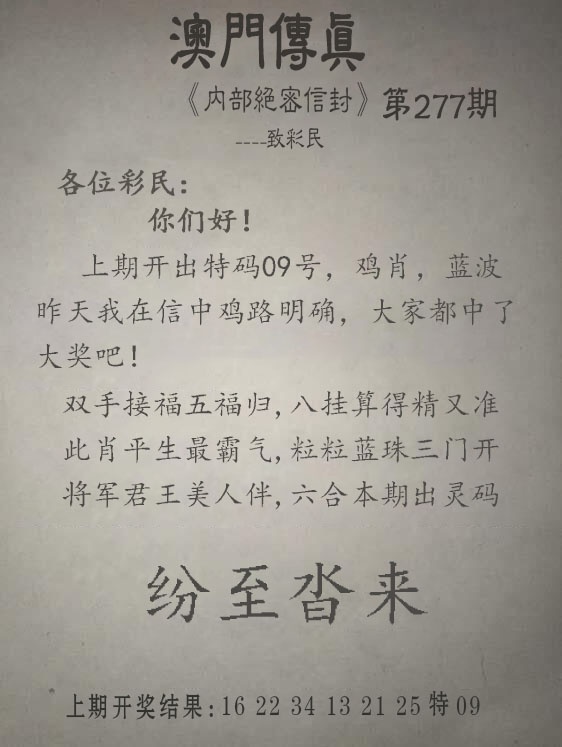 澳門傳眞
《内部絕密信封》第277期
----致彩民
各位彩民：
你们好！
上期开出特码09号，鸡肖，蓝波
昨天我在信中鸡路明确，大家都中了
大奖吧！
双手接福五福归,八挂算得精又准
此肖平生最霸气,粒粒蓝珠三门开
将军君王美人伴,六合本期出灵码
纷至沓来
上期开奖结果：16 22 34 13 21 25 特 09